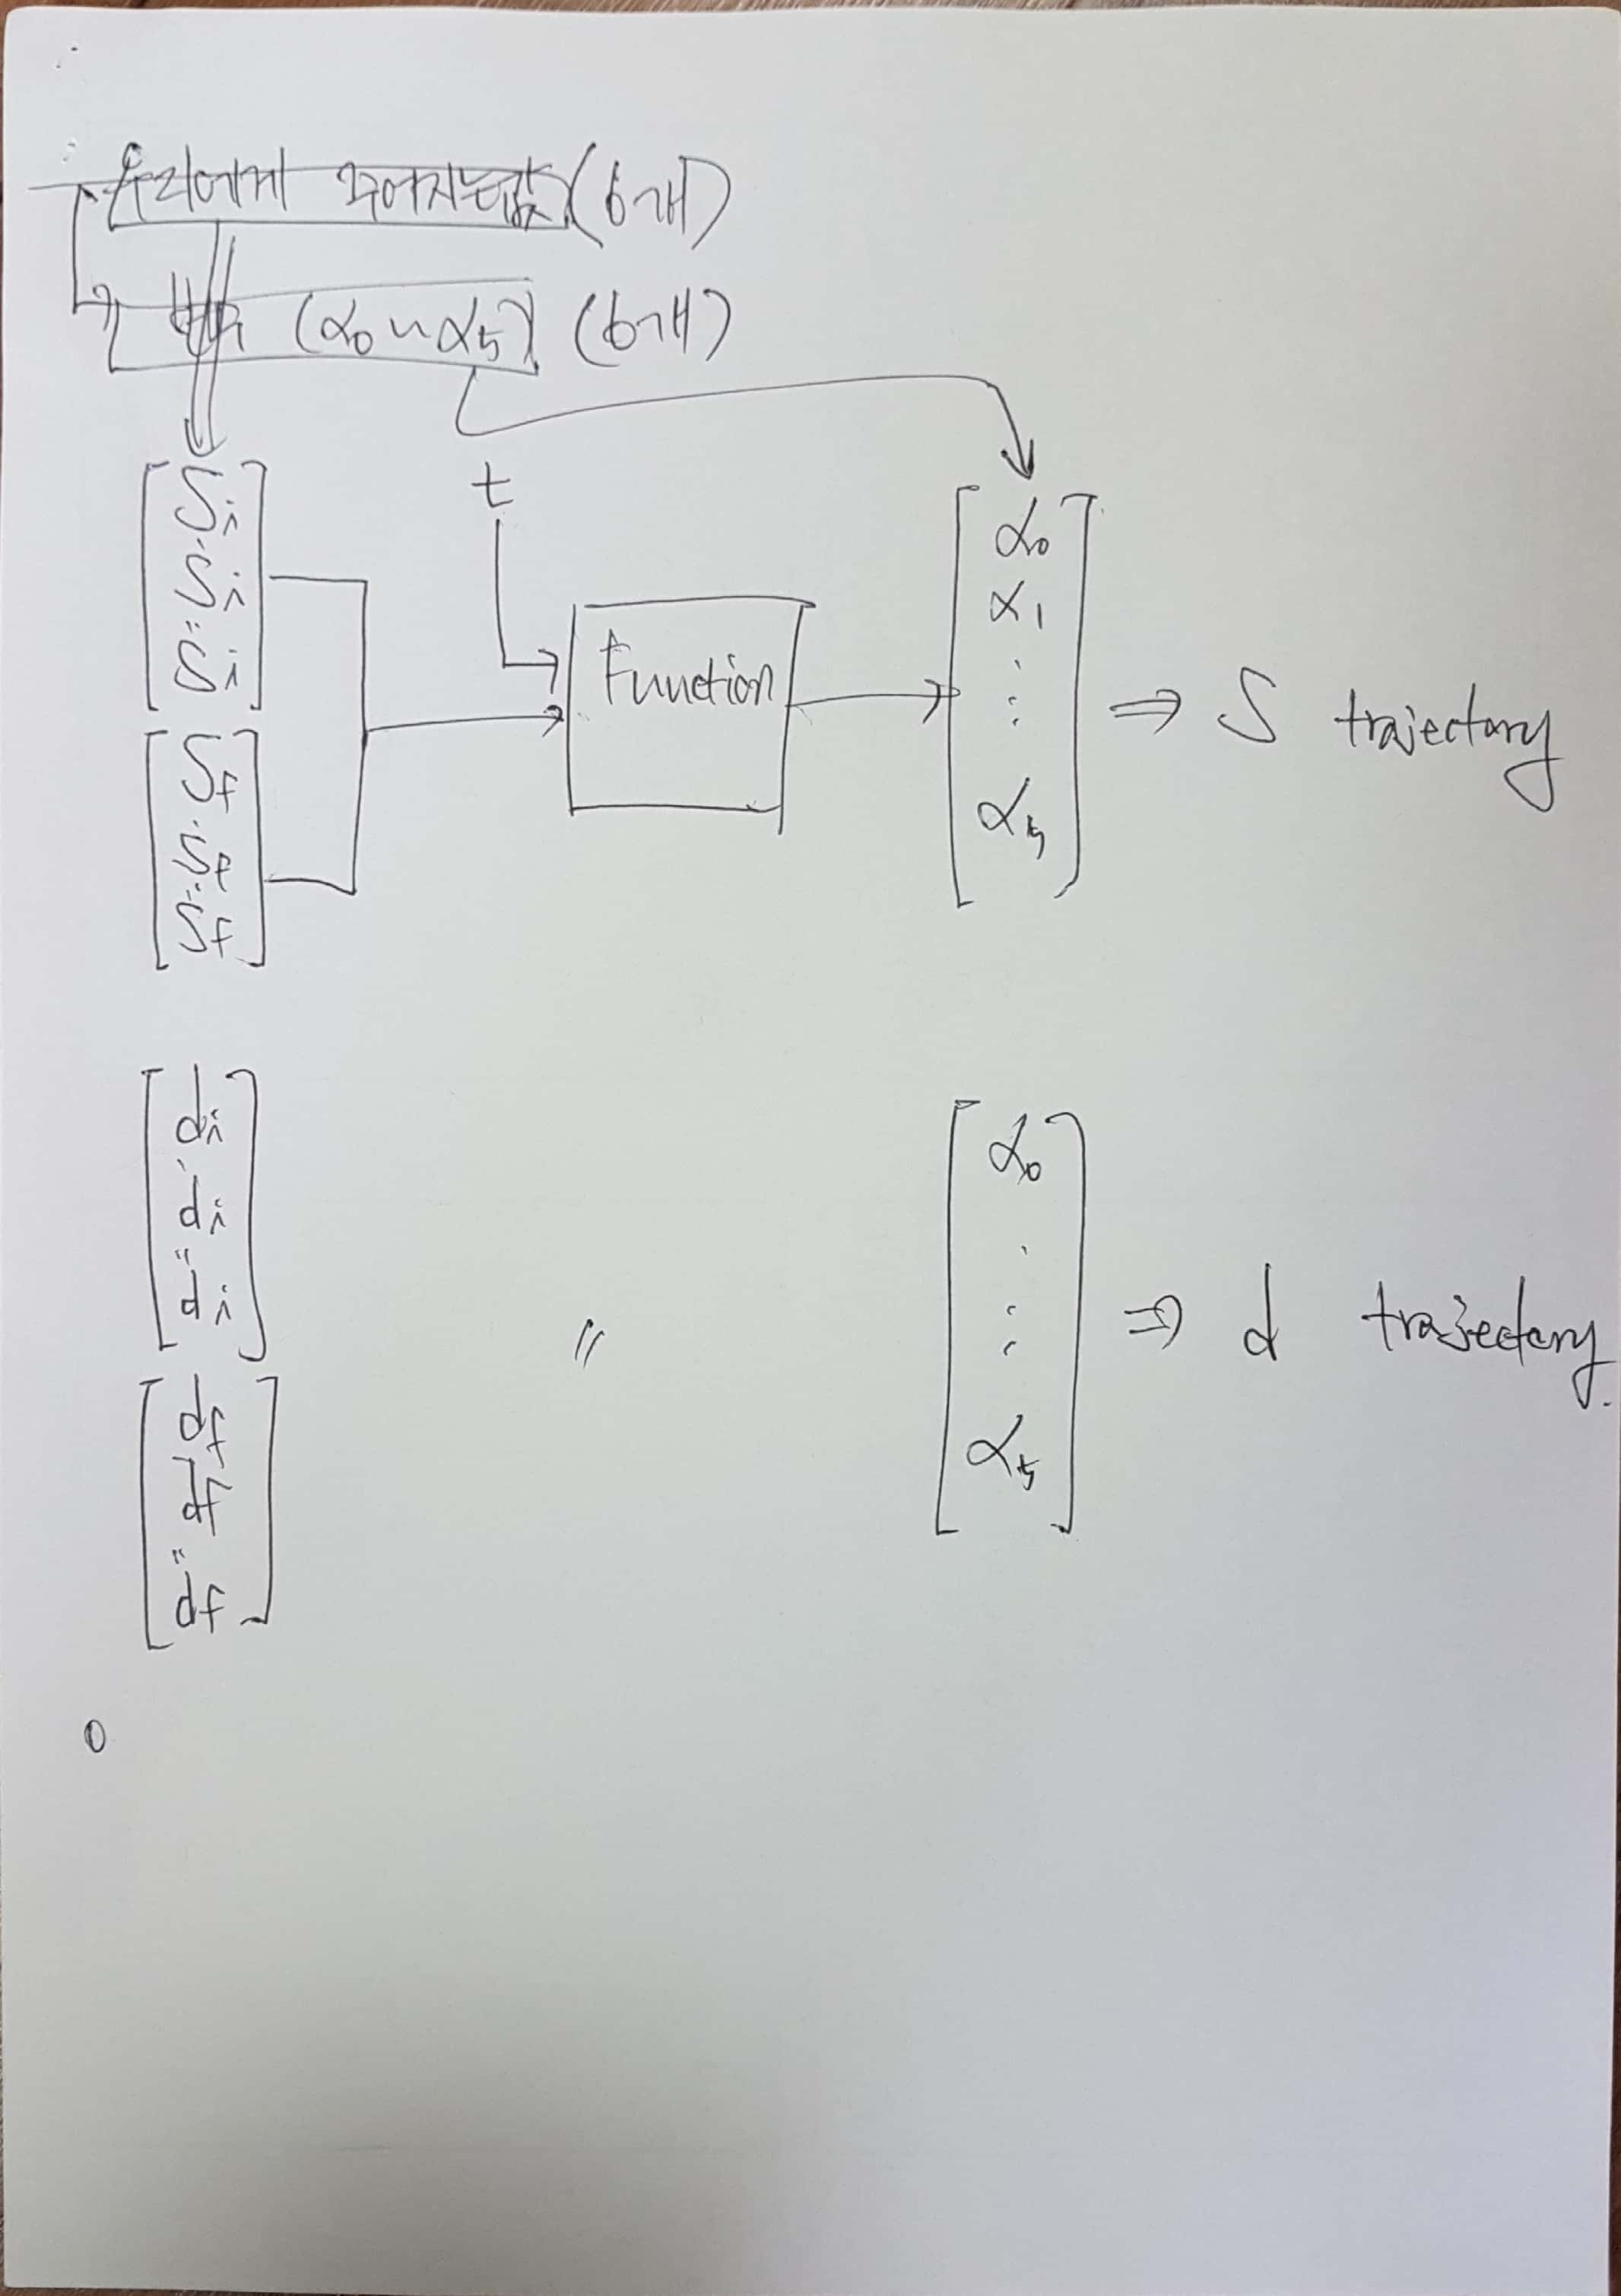 우리에게 주어지는 값 (6개)
변수 (α₀ ~ α₅) (6개)
t
Sᵢ
Ṡᵢ
S̈ᵢ
S_f
Ṡ_f
S̈_f
Function
α₀
α₁
⋮
α₅
⇒ S trajectory
dᵢ
ḋᵢ
d̈ᵢ
d_f
ḋ_f
d̈_f
〃
α₀
⋮
α₅
⇒ d trajectory.
0